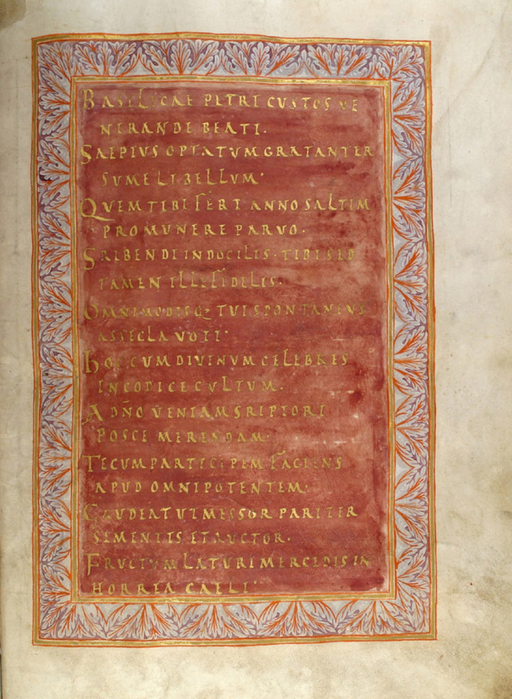 BASILICAE PETRI CUSTOS VE
NERANDE BEATI.
SAEPIUS OPTATUM GRATANTER
SUME LIBELLUM.
QUEM TIBI FERT ANNO SALTIM
PRO MUNERE PARVO.
SRIBENDI INDOCILIS. TIBI SED
TAMEN ILLE FIDELIS.
OMNIMODISQ; TUI SPONTANEUS
ASSECLA VOTI.
HOC CUM DIVINUM CELEBRES
IN CODICE CULTUM.
A DNO VENIAM SRIPTORI
POSCE MERENDAM.
TECUM PARTICIPEM FACIENS
APUD OMNIPOTENTEM.
GAUDEAT UT MESSOR PARITER
SEMENTIS ET AUCTOR.
FRUCTUM LATURI MERCEDIS IN
HORREA CAELI.